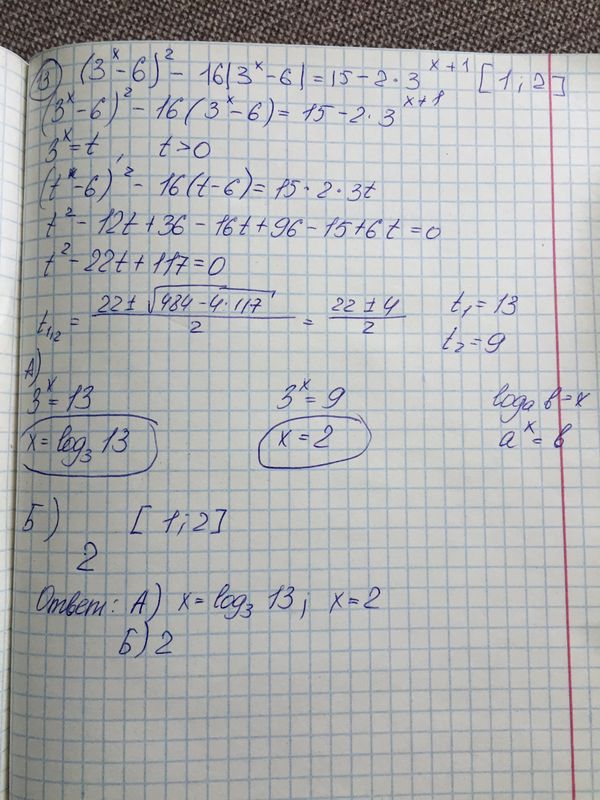 13) (3^x-6)^2 - 16|3^x-6| = 15-2·3^{x+1} [1; 2]
(3^x-6)^2 - 16(3^x-6) = 15-2·3^{x+1}
3^x = t, t>0
(t^x-6)^2 - 16(t-6) = 15·2·3t
t^2 - 12t + 36 - 16t + 96 - 15 + 6t = 0
t^2 - 22t + 117 = 0
t_{1,2} = \frac{22 ± \sqrt{484-4·117}}{2} = \frac{22 ± 4}{2} t_1 = 13
t_2 = 9
А)
3^x = 13 3^x = 9 log_a b = x
x = log_3 13 x = 2 a^x = b
Б) [1; 2]
2
Ответ: А) x = log_3 13; x = 2
Б) 2